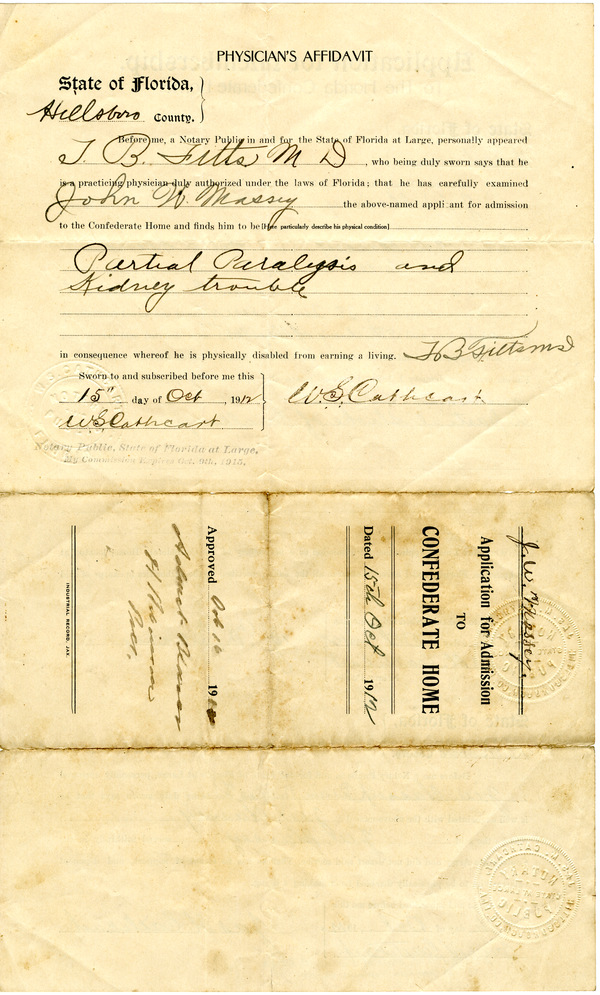 PHYSICIAN'S AFFIDAVIT
State of Florida,
Hillsboro County.
Before me, a Notary Public in and for the State of Florida at Large, personally appeared
T. B. Fitts M D, who being duly sworn says that he
is a practicing physician duly authorized under the laws of Florida; that he has carefully examined
John W. Massey the above-named applicant for admission
to the Confederate Home and finds him to be [Here particularly describe his physical condition]
Partial Paralysis and
Kidney trouble
in consequence whereof he is physically disabled from earning a living. T B Fitts MD
Sworn to and subscribed before me this
15" day of Oct, 1912
W G Cathcart
W G Cathcart
Notary Public, State of Florida at Large.
My Commission Expires Oct. 9th, 1915.
J. W. Massey.
Application for Admission
TO
CONFEDERATE HOME
Dated 15th Oct 1912
Approved Oct 16 1912
Admit
Pres.
INDUSTRIAL RECORD, JAX.